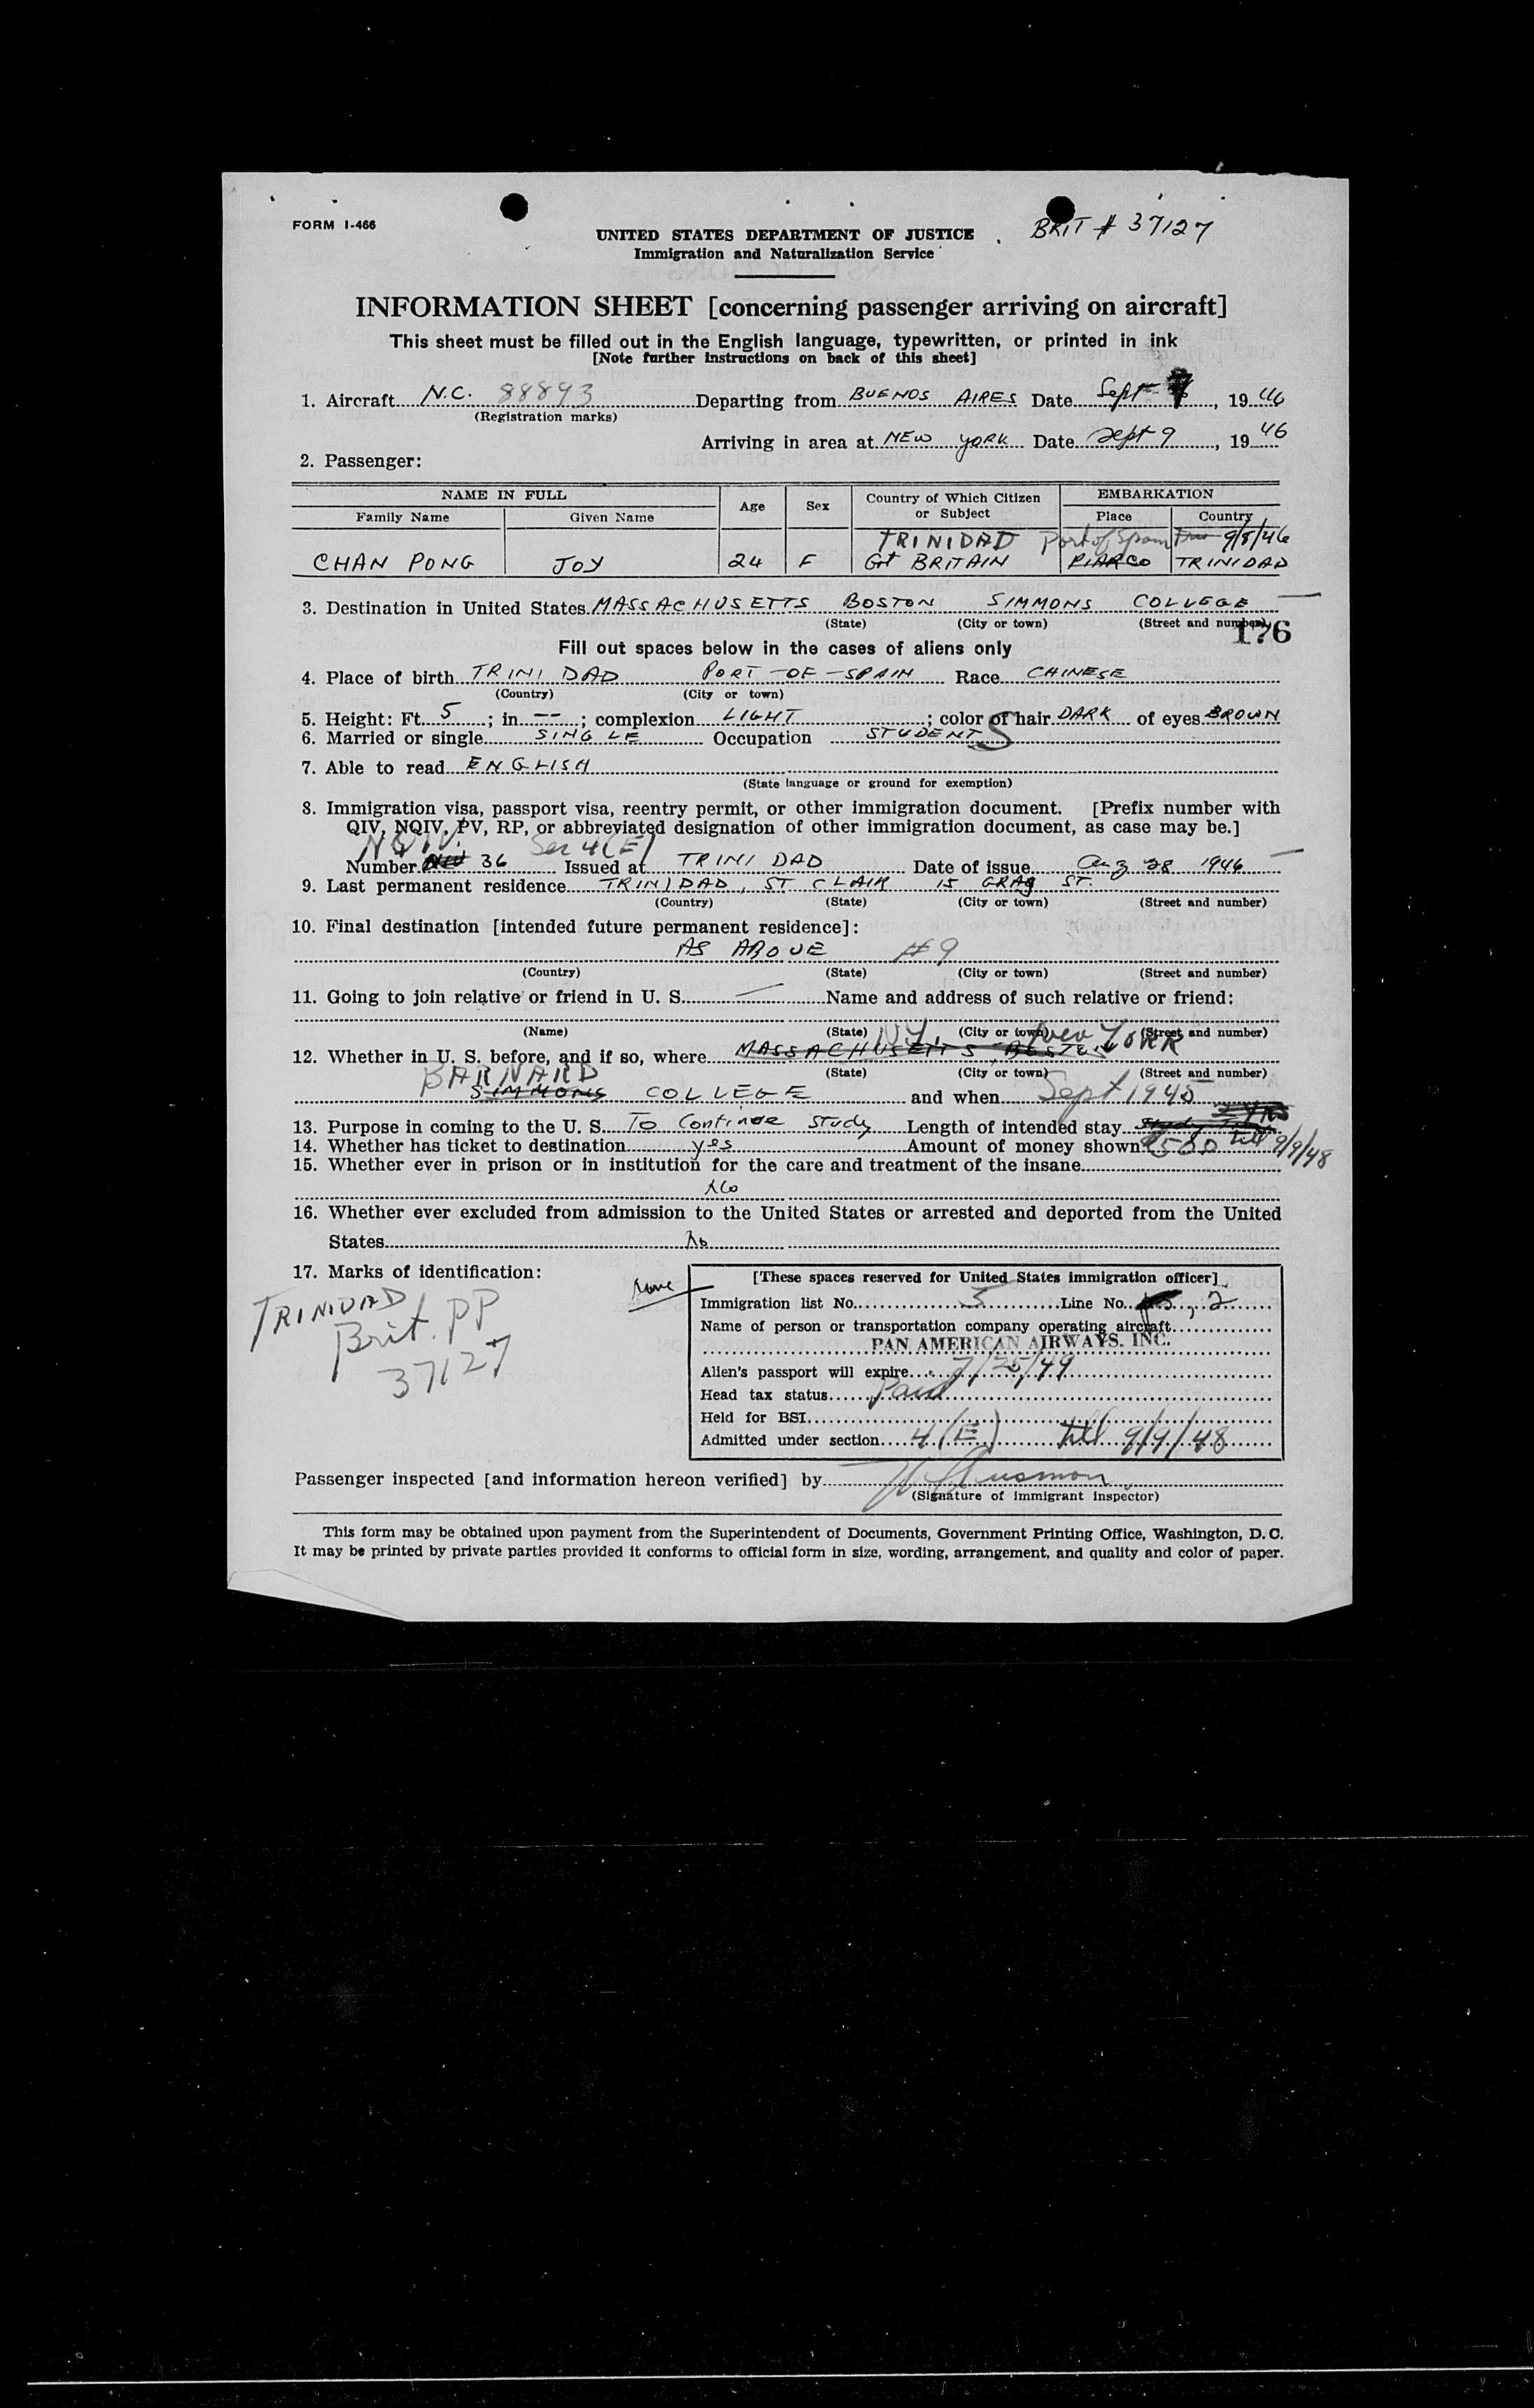 FORM I-466
BRIT # 37127
UNITED STATES DEPARTMENT OF JUSTICE
Immigration and Naturalization Service
INFORMATION SHEET [concerning passenger arriving on aircraft]
This sheet must be filled out in the English language, typewritten, or printed in ink
[Note further instructions on back of this sheet]
1. Aircraft N.C. 88893 Departing from BUENOS AIRES Date Sept 7, 19 46
(Registration marks)
Arriving in area at NEW YORK Date Sept 9, 19 46
2. Passenger:
NAME IN FULL Age Sex Country of Which Citizen or Subject EMBARKATION
Family Name Given Name Place Country
TRINIDAD Port of Spain 9/8/46
CHAN PONG JOY 24 F Gt BRITAIN PIARCO TRINIDAD
3. Destination in United States MASSACHUSETTS BOSTON SIMMONS COLLEGE
(State) (City or town) (Street and number)
176
Fill out spaces below in the cases of aliens only
4. Place of birth TRINIDAD PORT-OF-SPAIN Race CHINESE
(Country) (City or town)
5. Height: Ft. 5; in. --; complexion LIGHT; color of hair DARK of eyes BROWN
6. Married or single SINGLE Occupation STUDENT S
7. Able to read ENGLISH
(State language or ground for exemption)
8. Immigration visa, passport visa, reentry permit, or other immigration document. [Prefix number with
QIV, NQIV, PV, RP, or abbreviated designation of other immigration document, as case may be.]
NQIV. Sec 4(E)
Number 36 Issued at TRINIDAD Date of issue Aug 28 1946
9. Last permanent residence TRINIDAD, ST CLAIR 15 GRAY ST.
(Country) (State) (City or town) (Street and number)
10. Final destination [intended future permanent residence]:
AS ABOVE #9
(Country) (State) (City or town) (Street and number)
11. Going to join relative or friend in U. S. — Name and address of such relative or friend:
(Name) (State) (City or town) (Street and number)
NY, New YORK
12. Whether in U. S. before, and if so, where MASSACHUSETTS BOSTON
(State) (City or town) (Street and number)
BARNARD
SIMMONS COLLEGE and when Sept 1945
13. Purpose in coming to the U. S. To Continue Study Length of intended stay
14. Whether has ticket to destination yes Amount of money shown $500 till 9/9/48
15. Whether ever in prison or in institution for the care and treatment of the insane
No
16. Whether ever excluded from admission to the United States or arrested and deported from the United
States No
17. Marks of identification: None
TRINIDAD
Brit. PP
37127
[These spaces reserved for United States immigration officer]
Immigration list No. 5 Line No. 2
Name of person or transportation company operating aircraft
PAN AMERICAN AIRWAYS. INC.
Alien's passport will expire 7/25/49
Head tax status Paid
Held for BSI
Admitted under section 4(E) till 9/9/48
Passenger inspected [and information hereon verified] by
(Signature of immigrant inspector)
This form may be obtained upon payment from the Superintendent of Documents, Government Printing Office, Washington, D. C.
It may be printed by private parties provided it conforms to official form in size, wording, arrangement, and quality and color of paper.